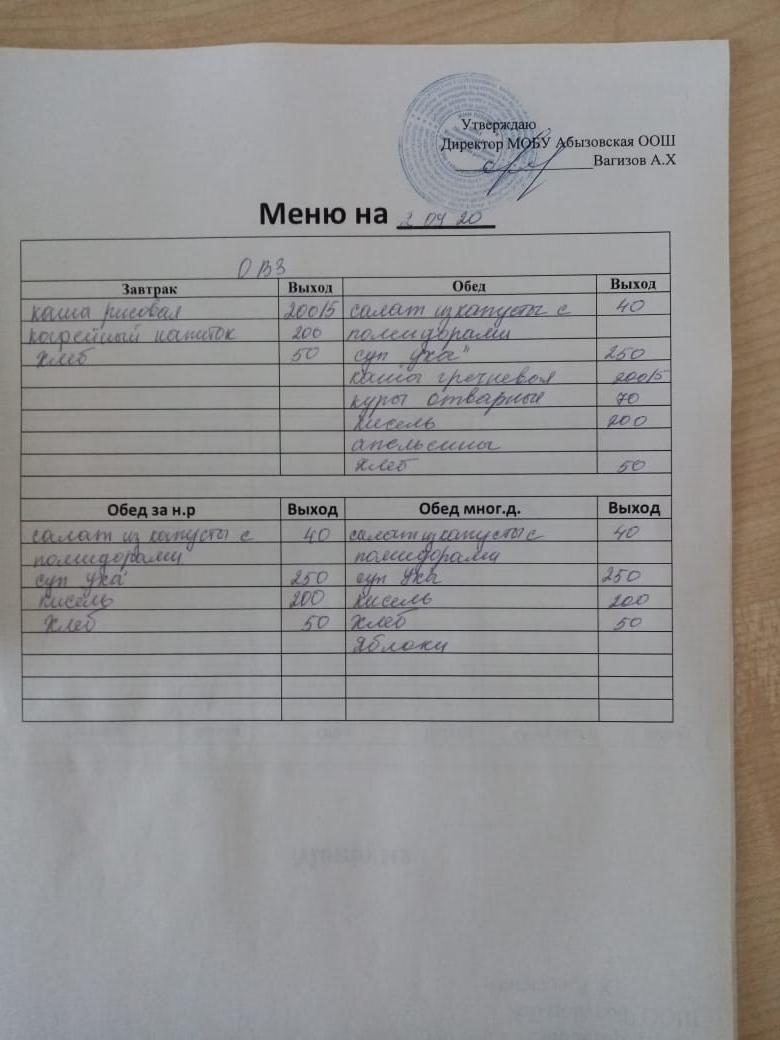 Утверждаю
Директор МОБУ Абызовская ООШ
Вагизов А.Х
Меню на 2 04 20
ОВЗ
Завтрак Выход Обед Выход
каша рисовая 200/5 салат из капусты с 40
кофейный напиток 200 помидорами
хлеб 50 суп "уха" 250
каша гречневая 200/5
куры отварные 70
кисель 200
апельсины
хлеб 50
Обед за н.р Выход Обед мног.д. Выход
салат из капусты с 40 салат из капусты с 40
помидорами помидорами
суп уха 250 суп уха 250
кисель 200 кисель 200
хлеб 50 хлеб 50
яблоки